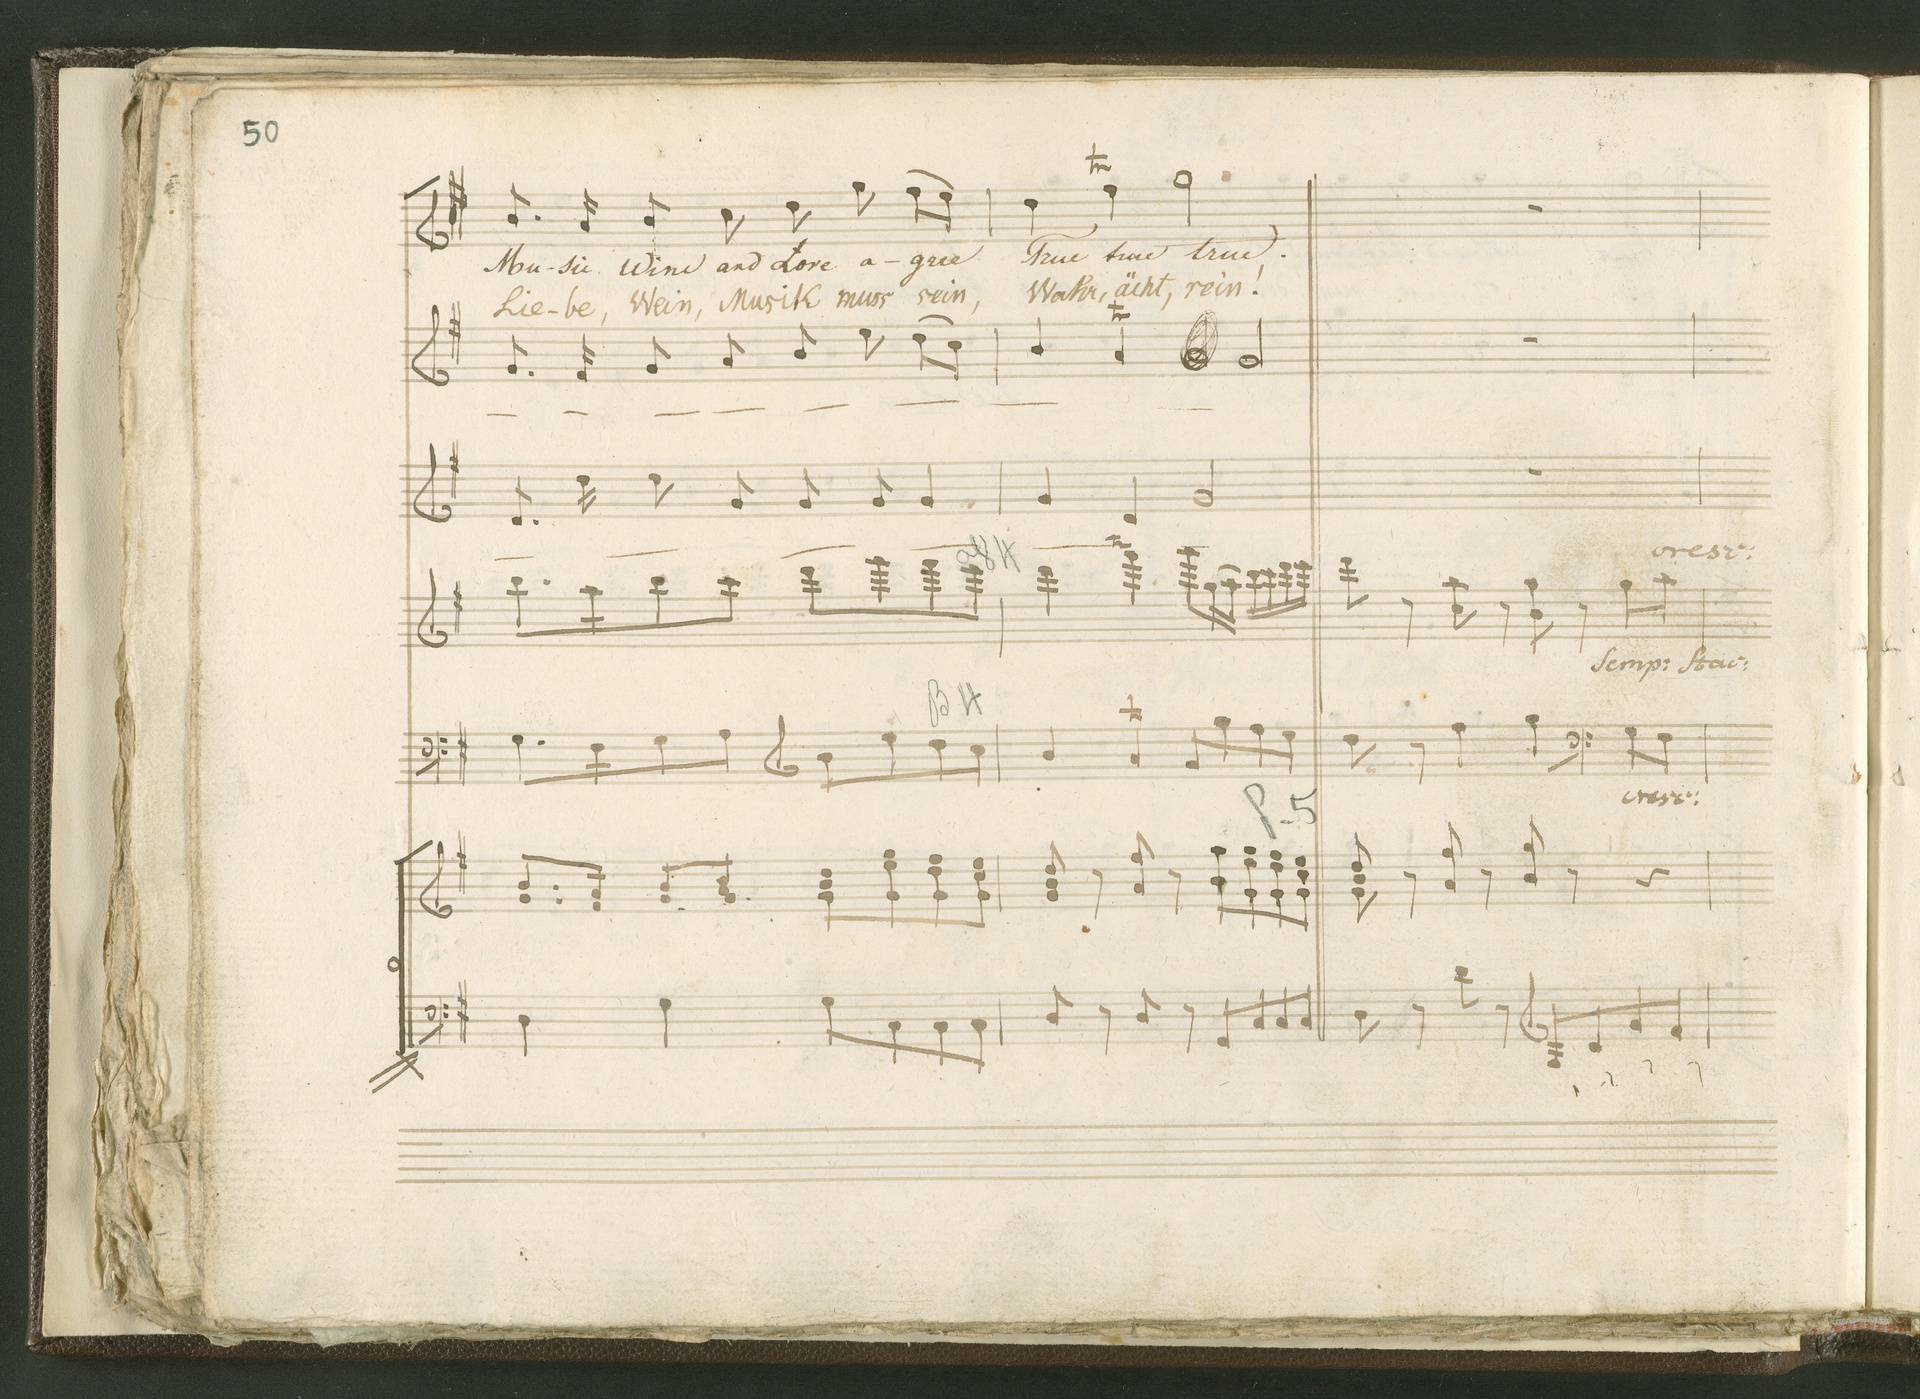 50
Mu-sic Wine and Love a-gree True true true.
Lie-be, Wein, Musik muss sein, Wahr, ächt, rein!
cresc:
Semp: Stac:
B H
cresc:
P. 5